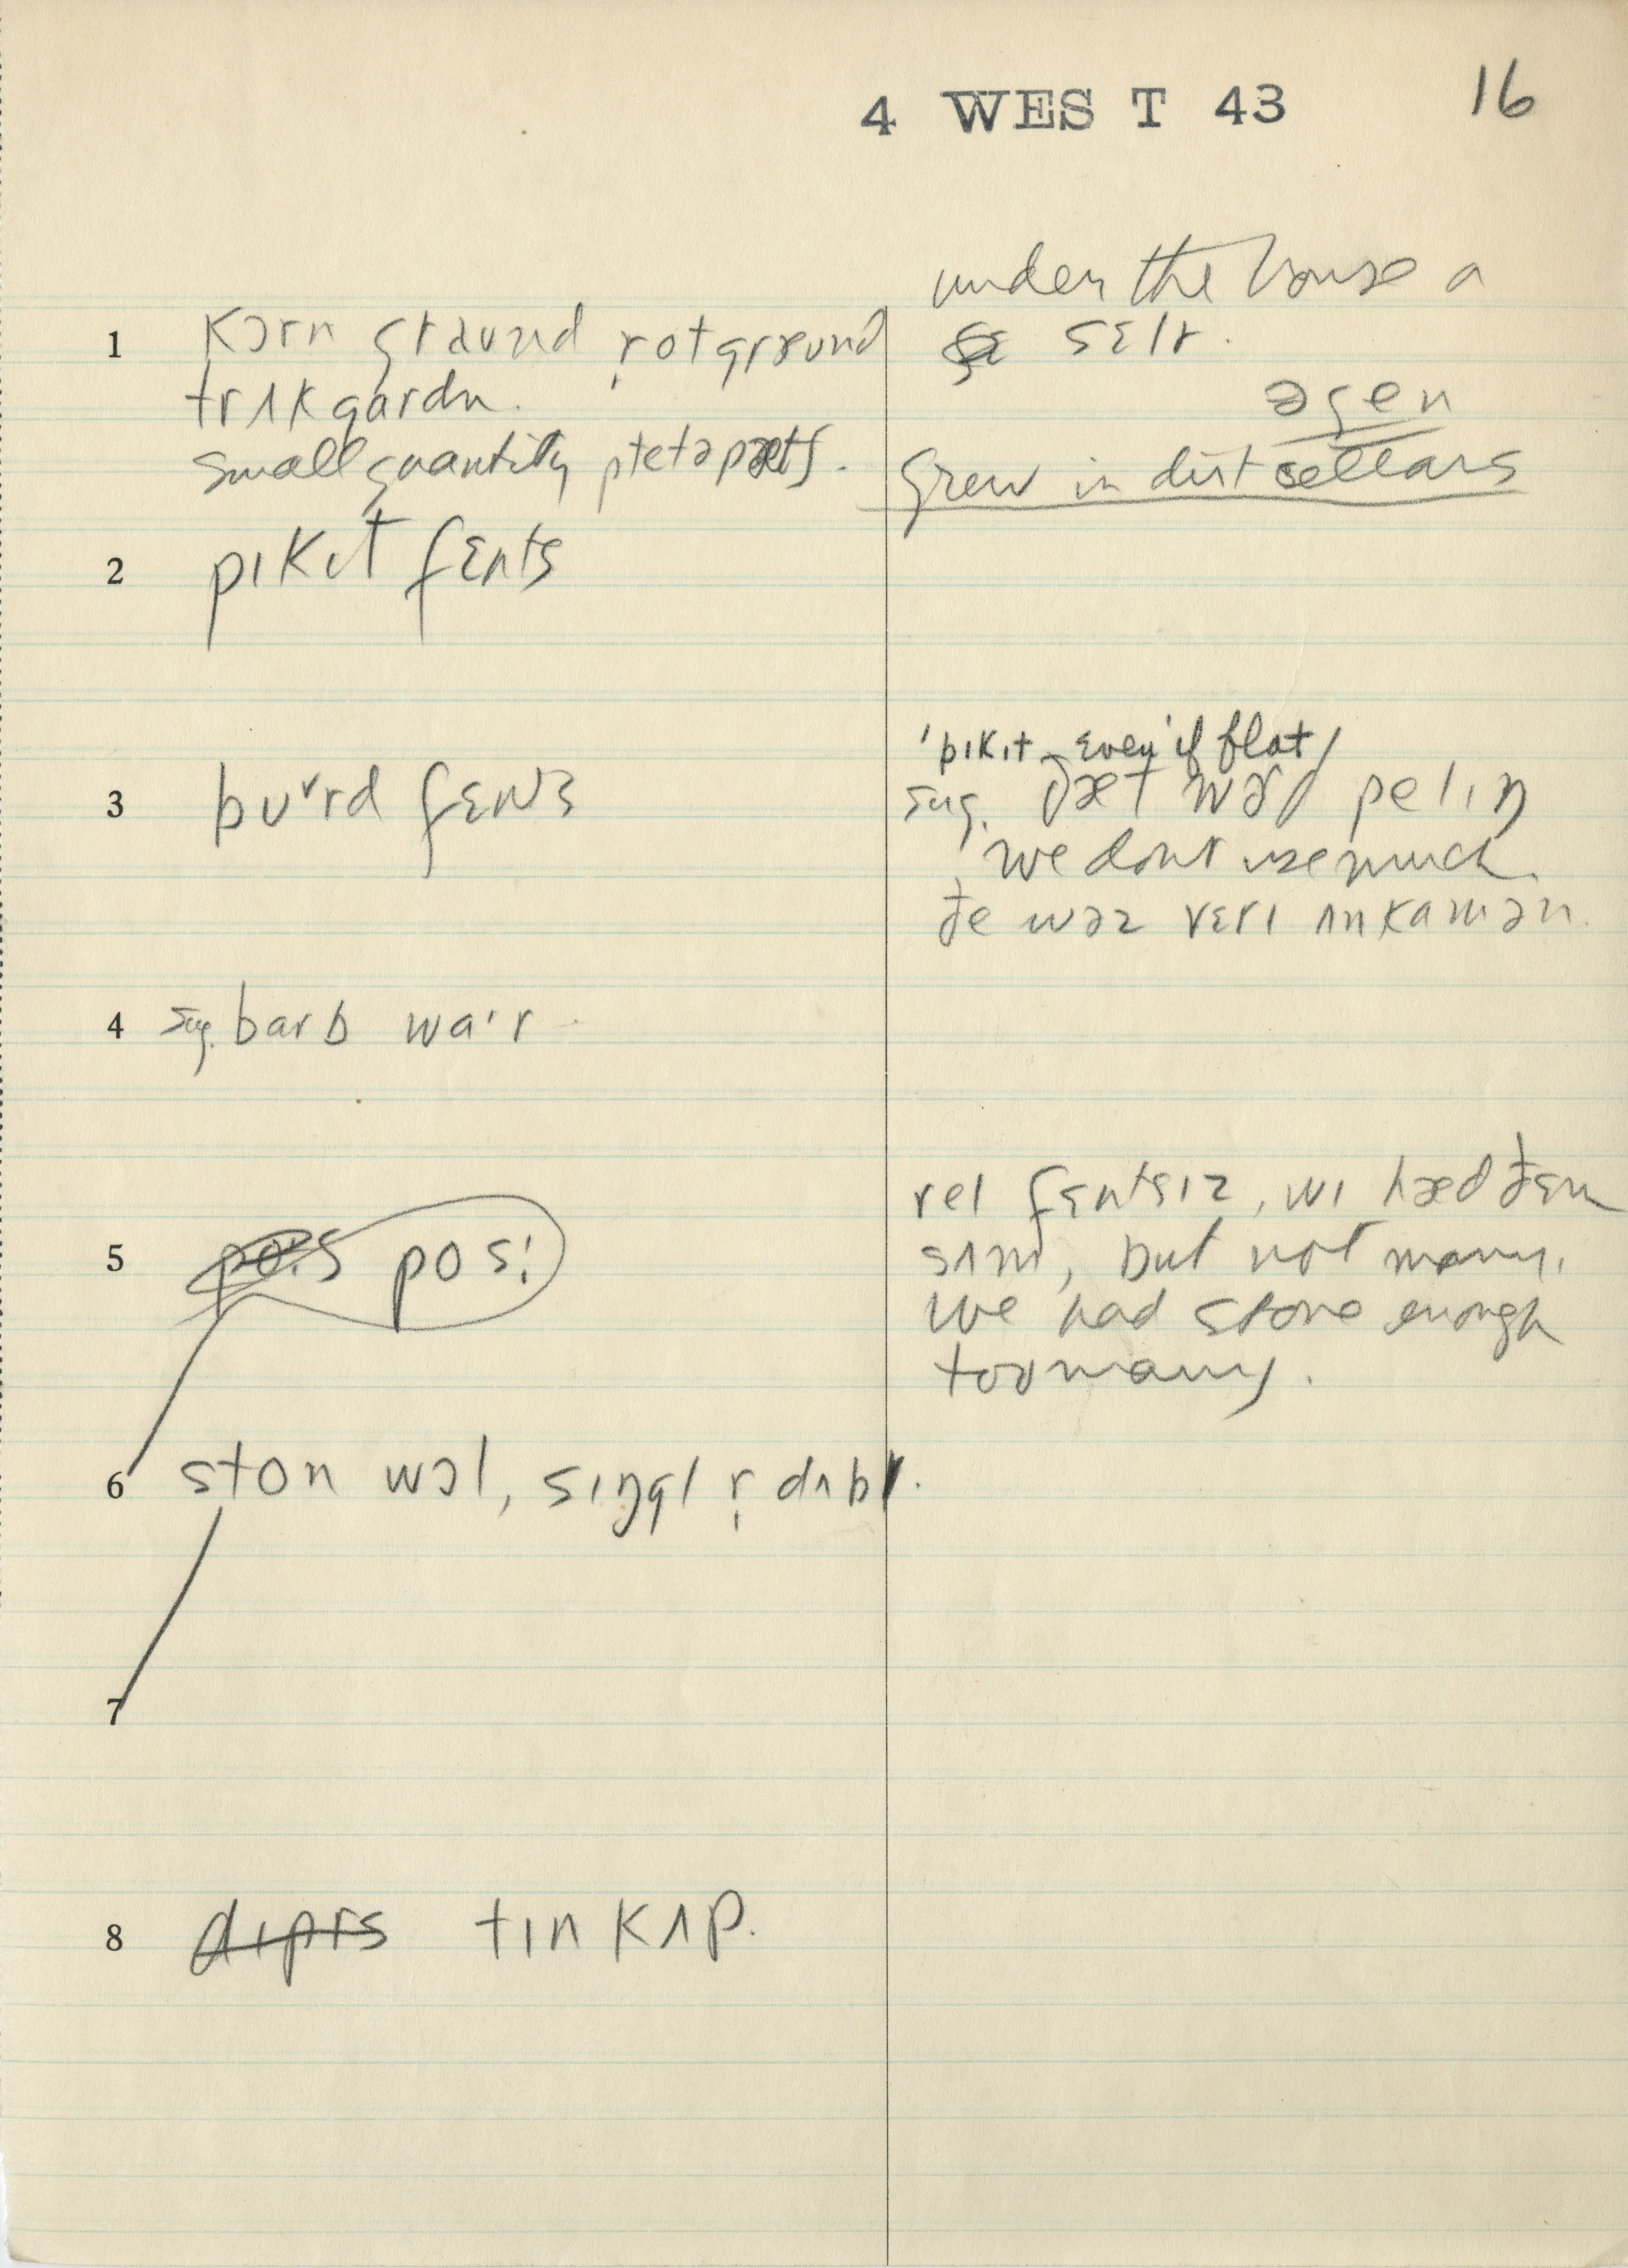 4 WEST 43 16
1 kɔrn graund r̩ ot ground
trʌk gardn.
small quantity ptetə pætʃ.
under the house a
sɛlr.
əgen
Grew in dirt cellars
2 pɪkɪt fɛnts
3 bʊᵊrd fɛns
'pɪkɪt even if flat
sug. ðæt wəz pelɪŋ
we dont use much.
ðe wəz vɛrɪ ʌnkamən.
4 sug. barb waɪr
5 pos:
rel fɛntsɪz, wɪ hæd ðɛm
sʌm, but not many.
We had stone enough
too many.
6 ston wɔl, sɪŋgl r̩ dʌbl.
7
8 dɪprs tɪn kʌp.